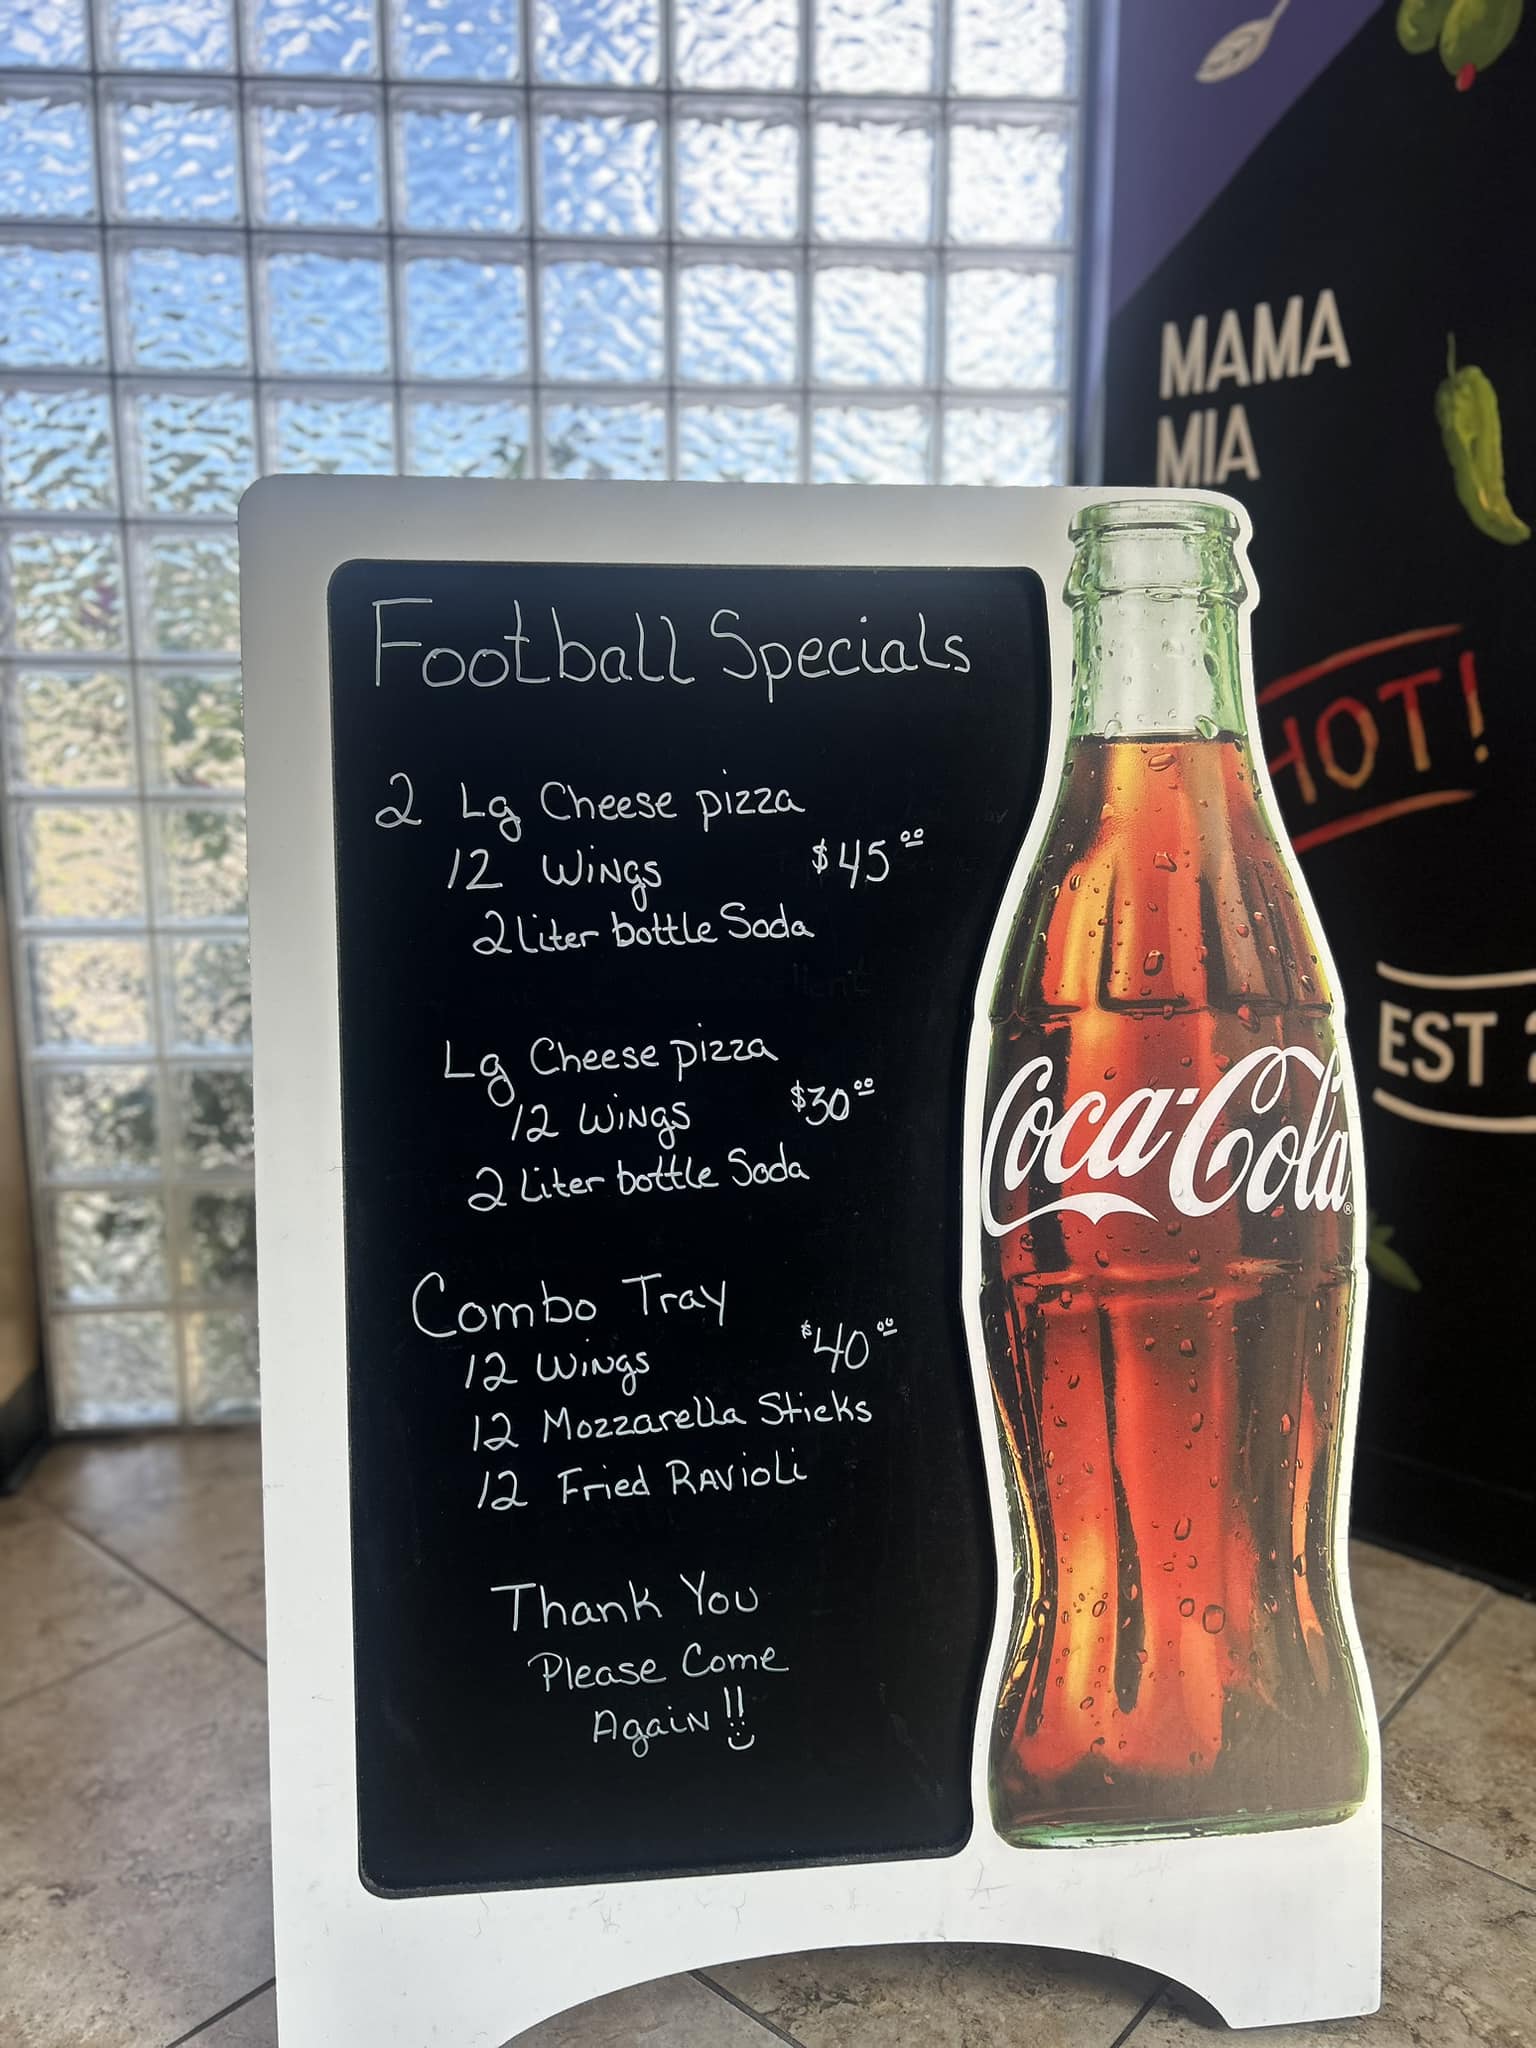 MAMA
MIA
HOT!
EST
Football Specials
2 Lg Cheese pizza
12 Wings $45.00
2 Liter bottle Soda
Lg Cheese pizza
12 Wings $30.00
2 Liter bottle Soda
Combo Tray
12 Wings $40.00
12 Mozzarella Sticks
12 Fried Ravioli
Thank You
Please Come
Again!!
Coca-Cola®